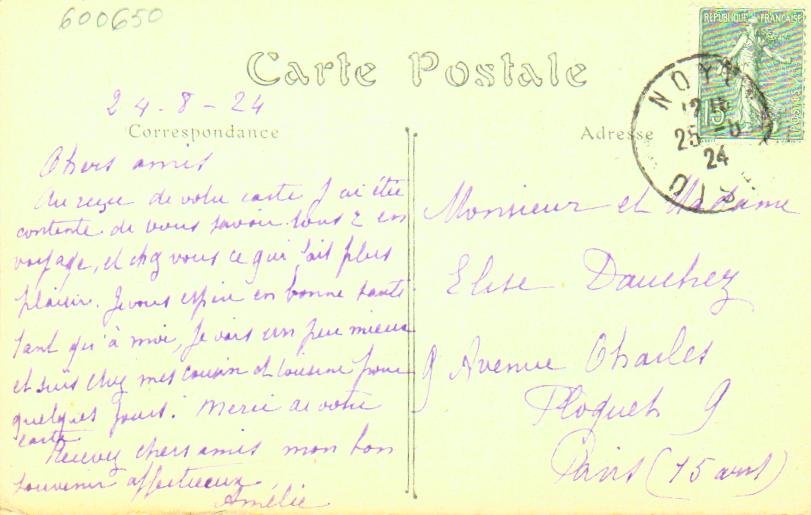 600650
RÉPUBLIQUE FRANÇAISE
Carte Postale
24-8-24
Correspondance
Chers amis
Au reçue de votre carte j'ai été
contente de vous savoir tous 2 en
voyage, et chez vous ce qui fait plus
plaisir. Je vous espère en bonne santé
tant qu'à moi, je vais un peu mieux
et suis chez mes cousin et cousine pour
quelques jours. Merci de votre
carte
Recevez chers amis mon bon
souvenir affectueux
Amélie
Adresse
Monsieur et Madame
Elise Dauchez
9 Avenue Charles
Floquet 9
Paris (15 arrt)
NOY
OISE
12
25 -8
24
15